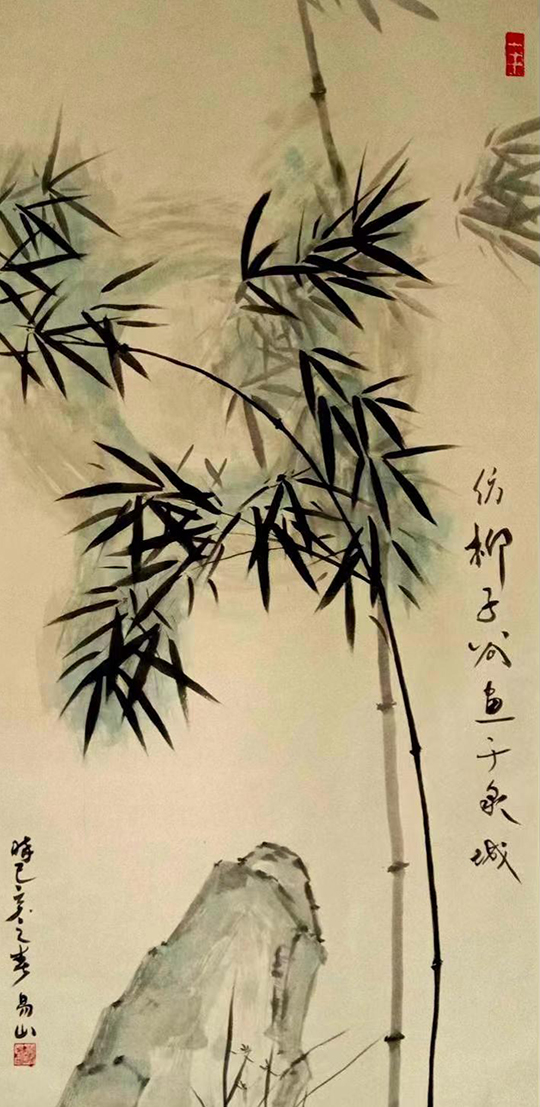 仿柳子谷画于泉城
时己亥之春易山